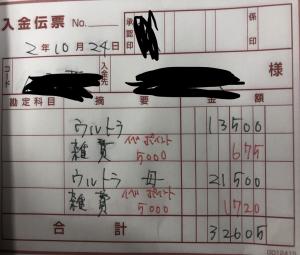 入金伝票 No.
承認印 係印
2年10月24日
コード 入金先 様
勘定科目 摘要 金額
ウルトラ 13500
雑費 イベポイント 5000 675
ウルトラ 母 21500
雑費 イベポイント 5000 1720
合計 32605